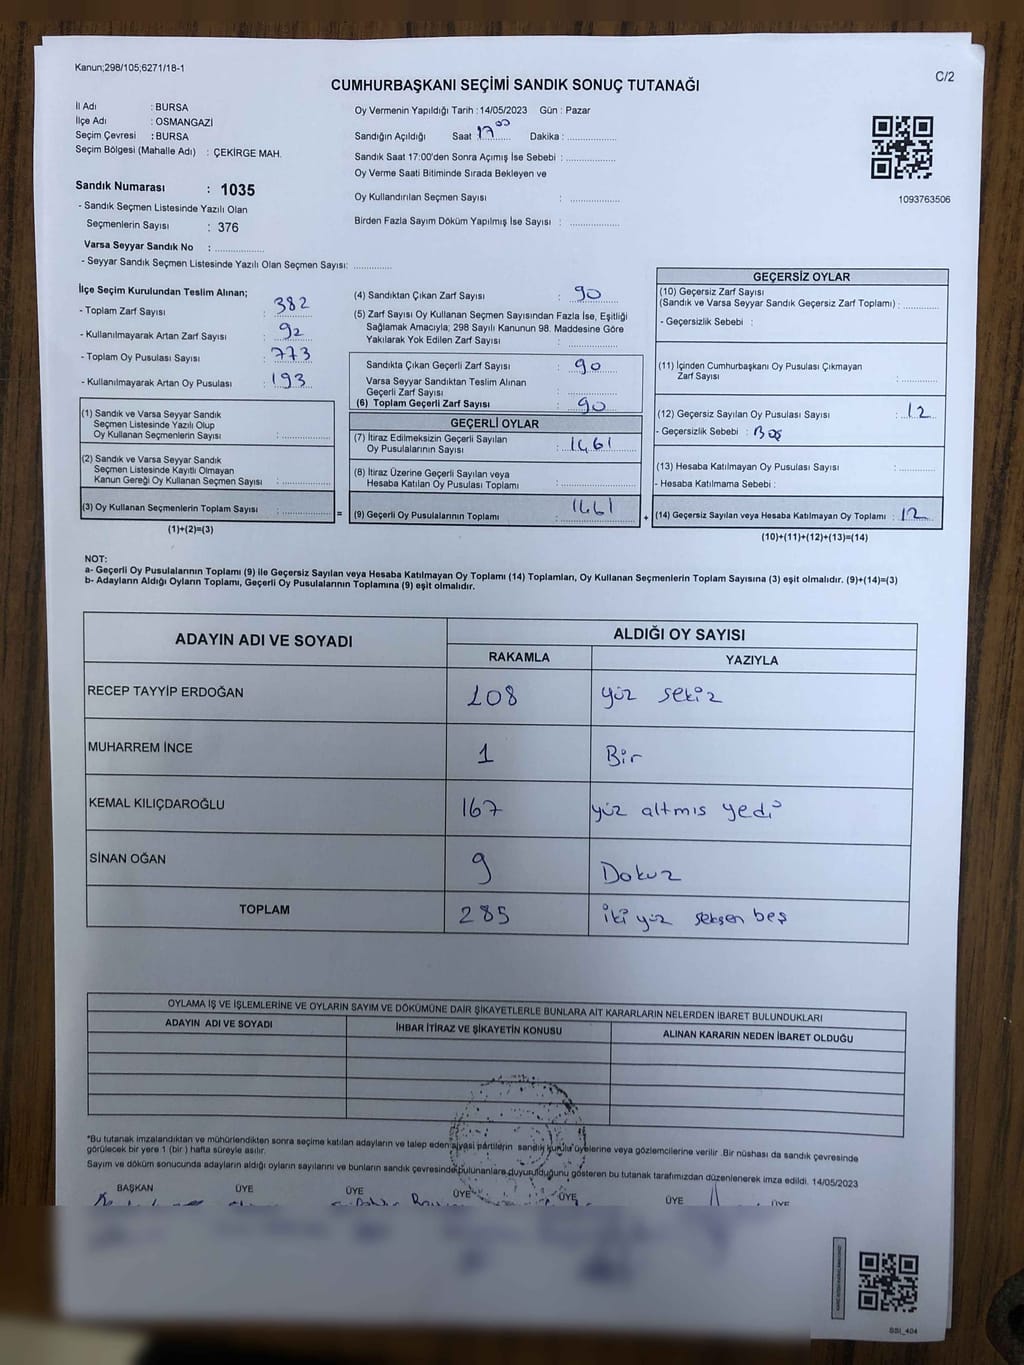 Kanun;298/105;6271/18-1
C/2
CUMHURBAŞKANI SEÇİMİ SANDIK SONUÇ TUTANAĞI
İl Adı : BURSA
İlçe Adı : OSMANGAZİ
Seçim Çevresi : BURSA
Seçim Bölgesi (Mahalle Adı) : ÇEKİRGE MAH.
Oy Vermenin Yapıldığı Tarih : 14/05/2023 Gün : Pazar
Sandığın Açıldığı Saat 17 00 Dakika :
Sandık Saat 17:00'den Sonra Açımış İse Sebebi :
Oy Verme Saati Bitiminde Sırada Bekleyen ve
Oy Kullandırılan Seçmen Sayısı :
Birden Fazla Sayım Döküm Yapılmış İse Sayısı :
1093763506
Sandık Numarası : 1035
- Sandık Seçmen Listesinde Yazılı Olan
Seçmenlerin Sayısı : 376
Varsa Seyyar Sandık No :
- Seyyar Sandık Seçmen Listesinde Yazılı Olan Seçmen Sayısı:
İlçe Seçim Kurulundan Teslim Alınan;
- Toplam Zarf Sayısı : 382
- Kullanılmayarak Artan Zarf Sayısı : 92
- Toplam Oy Pusulası Sayısı : 773
- Kullanılmayarak Artan Oy Pusulası : 193
(1) Sandık ve Varsa Seyyar Sandık
Seçmen Listesinde Yazılı Olup
Oy Kullanan Seçmenlerin Sayısı :
(2) Sandık ve Varsa Seyyar Sandık
Seçmen Listesinde Kayıtlı Olmayan
Kanun Gereği Oy Kullanan Seçmen Sayısı :
(3) Oy Kullanan Seçmenlerin Toplam Sayısı :
(1)+(2)=(3)
=
(4) Sandıktan Çıkan Zarf Sayısı : 90
(5) Zarf Sayısı Oy Kullanan Seçmen Sayısından Fazla İse, Eşitliği
Sağlamak Amacıyla; 298 Sayılı Kanunun 98. Maddesine Göre
Yakılarak Yok Edilen Zarf Sayısı :
Sandıkta Çıkan Geçerli Zarf Sayısı : 90
Varsa Seyyar Sandıktan Teslim Alınan
Geçerli Zarf Sayısı :
(6) Toplam Geçerli Zarf Sayısı : 90
GEÇERLİ OYLAR
(7) İtiraz Edilmeksizin Geçerli Sayılan
Oy Pusulalarının Sayısı :
(8) İtiraz Üzerine Geçerli Sayılan veya
Hesaba Katılan Oy Pusulası Toplamı :
(9) Geçerli Oy Pusulalarının Toplamı :
+
GEÇERSİZ OYLAR
(10) Geçersiz Zarf Sayısı
(Sandık ve Varsa Seyyar Sandık Geçersiz Zarf Toplamı) :
- Geçersizlik Sebebi :
(11) İçinden Cumhurbaşkanı Oy Pusulası Çıkmayan
Zarf Sayısı :
(12) Geçersiz Sayılan Oy Pusulası Sayısı : 12
- Geçersizlik Sebebi : Boş
(13) Hesaba Katılmayan Oy Pusulası Sayısı :
- Hesaba Katılmama Sebebi :
(14) Geçersiz Sayılan veya Hesaba Katılmayan Oy Toplamı : 12
(10)+(11)+(12)+(13)=(14)
NOT:
a- Geçerli Oy Pusulalarının Toplamı (9) ile Geçersiz Sayılan veya Hesaba Katılmayan Oy Toplamı (14) Toplamları, Oy Kullanan Seçmenlerin Toplam Sayısına (3) eşit olmalıdır. (9)+(14)=(3)
b- Adayların Aldığı Oyların Toplamı, Geçerli Oy Pusulalarının Toplamına (9) eşit olmalıdır.
ADAYIN ADI VE SOYADI ALDIĞI OY SAYISI
RAKAMLA YAZIYLA
RECEP TAYYİP ERDOĞAN 108 yüz sekiz
MUHARREM İNCE 1 Bir
KEMAL KILIÇDAROĞLU 167 yüz altmıs yedi
SİNAN OĞAN 9 Dokuz
TOPLAM 285 iki yüz seksen beş
OYLAMA İŞ VE İŞLEMLERİNE VE OYLARIN SAYIM VE DÖKÜMÜNE DAİR ŞİKAYETLERLE BUNLARA AİT KARARLARIN NELERDEN İBARET BULUNDUKLARI
ADAYIN ADI VE SOYADI İHBAR İTİRAZ VE ŞİKAYETİN KONUSU ALINAN KARARIN NEDEN İBARET OLDUĞU
*Bu tutanak imzalandıktan ve mühürlendikten sonra seçime katılan adayların ve talep eden siyasi partilerin sandık kurulu üyelerine veya gözlemcilerine verilir .Bir nüshası da sandık çevresinde
görülecek bir yere 1 (bir ) hafta süreyle asılır.
Sayım ve döküm sonucunda adayların aldığı oyların sayılarını ve bunların sandık çevresinde bulunanlara duyurulduğunu gösteren bu tutanak tarafımızdan düzenlenerek imza edildi. 14/05/2023
BAŞKAN ÜYE ÜYE ÜYE ÜYE ÜYE ÜYE